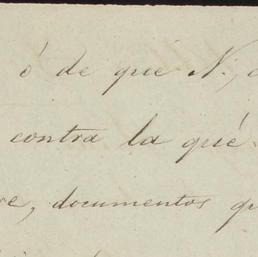 ó de que N.,
contra la qué
re, documentos qu